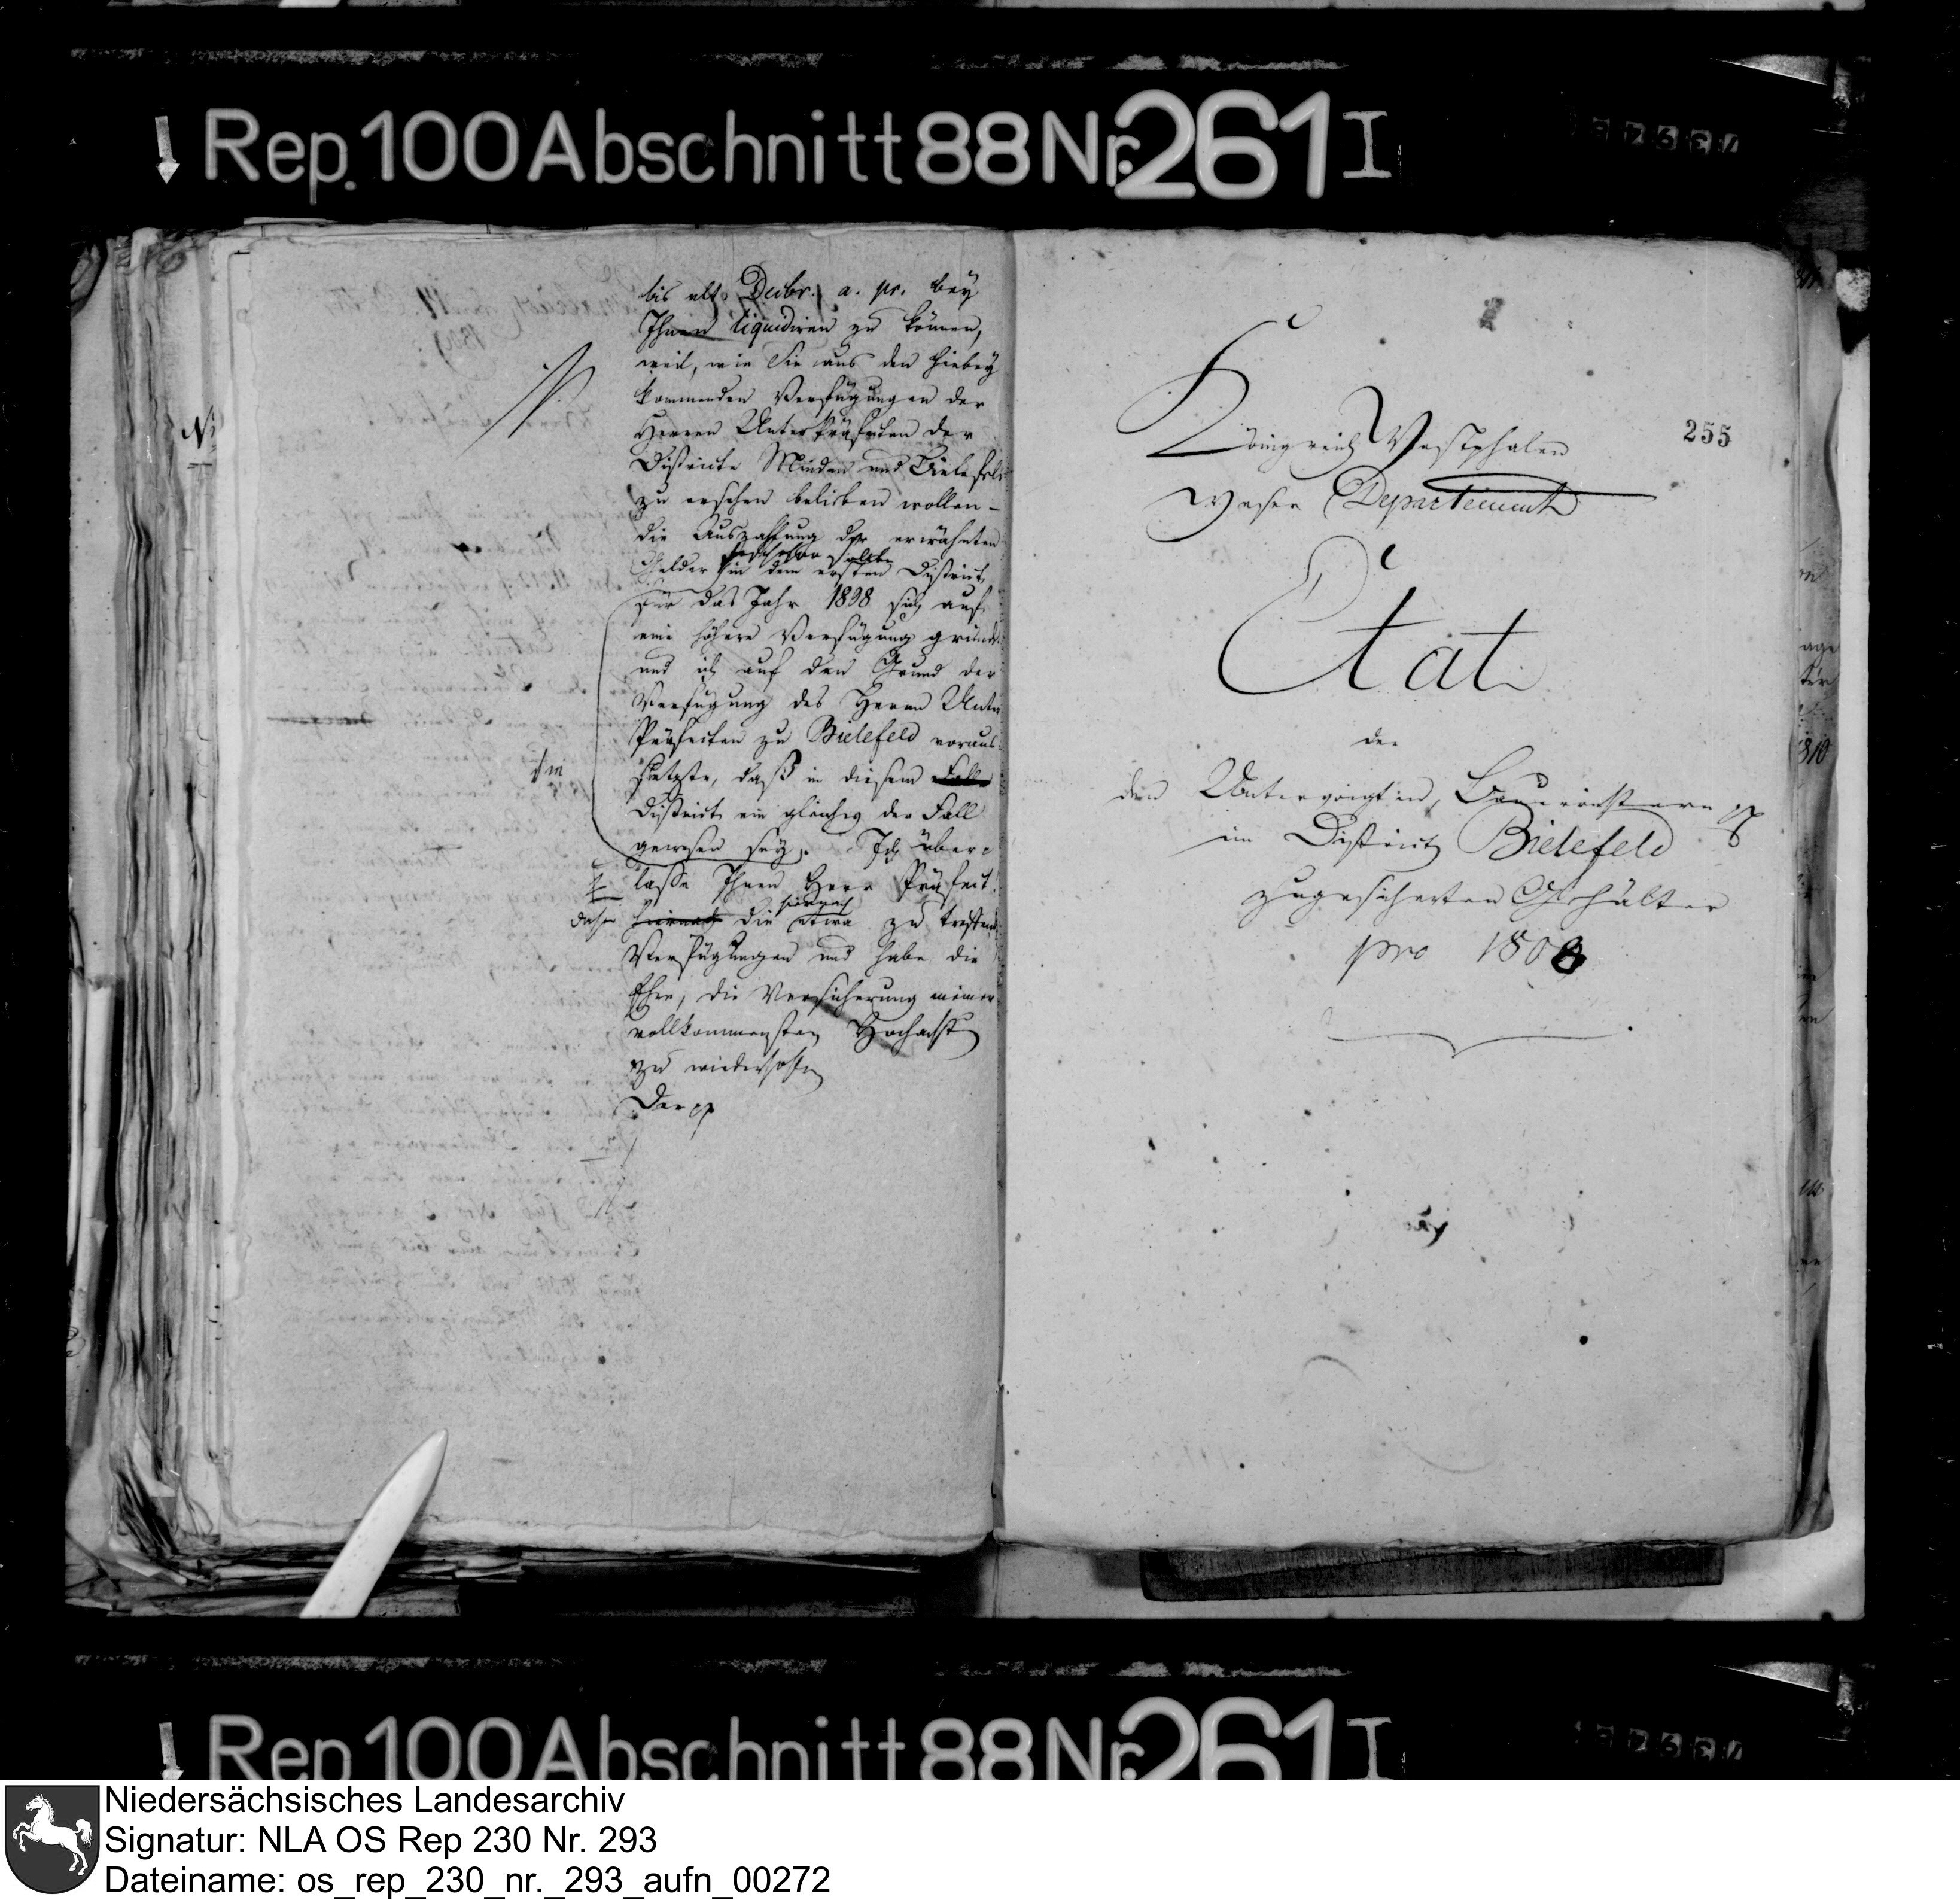 Rep. 100 Abschnitt 88 Nr. 261 I
bis ult. Decbr. a. pr. bey
Ihnen liquidiren zu können,
weil, wie Sie aus den hiebey
kommenden Verfügungen der
Herren Unterpräfecten der
Districte Minden und Bielefeld
zu ersehen belieben wollen –
die Auszahlung der erwähnten
Gelder in dem ersten District
für das Jahr 1808 sich auf
eine höhere Verfügung gründe
und ich auf den Grund der
Verfügung des Herrn Unter
Präfecten zu Bielefeld voraus-
setzte, daß in diesem Fall
District ein gleiches der Fall
gewesen sey. Ich über-
lasse Ihnen Herr Präfect
daher hiernach die etwa hiernach zu treffend
Verfügungen und habe die
Ehre, die Versicherung meiner
vollkommensten Hochacht
zu wiederholen
Der pp
255
Königreich Westphalen
Weser Departement
Etat
der
den Untervoigten, Bauerrichtern pp
im District Bielefeld
zugesicherten Gehälter
pro 1808
Rep 100 Abschnitt 88 Nr. 261 I
Niedersächsisches Landesarchiv
Signatur: NLA OS Rep 230 Nr. 293
Dateiname: os_rep_230_nr._293_aufn_00272